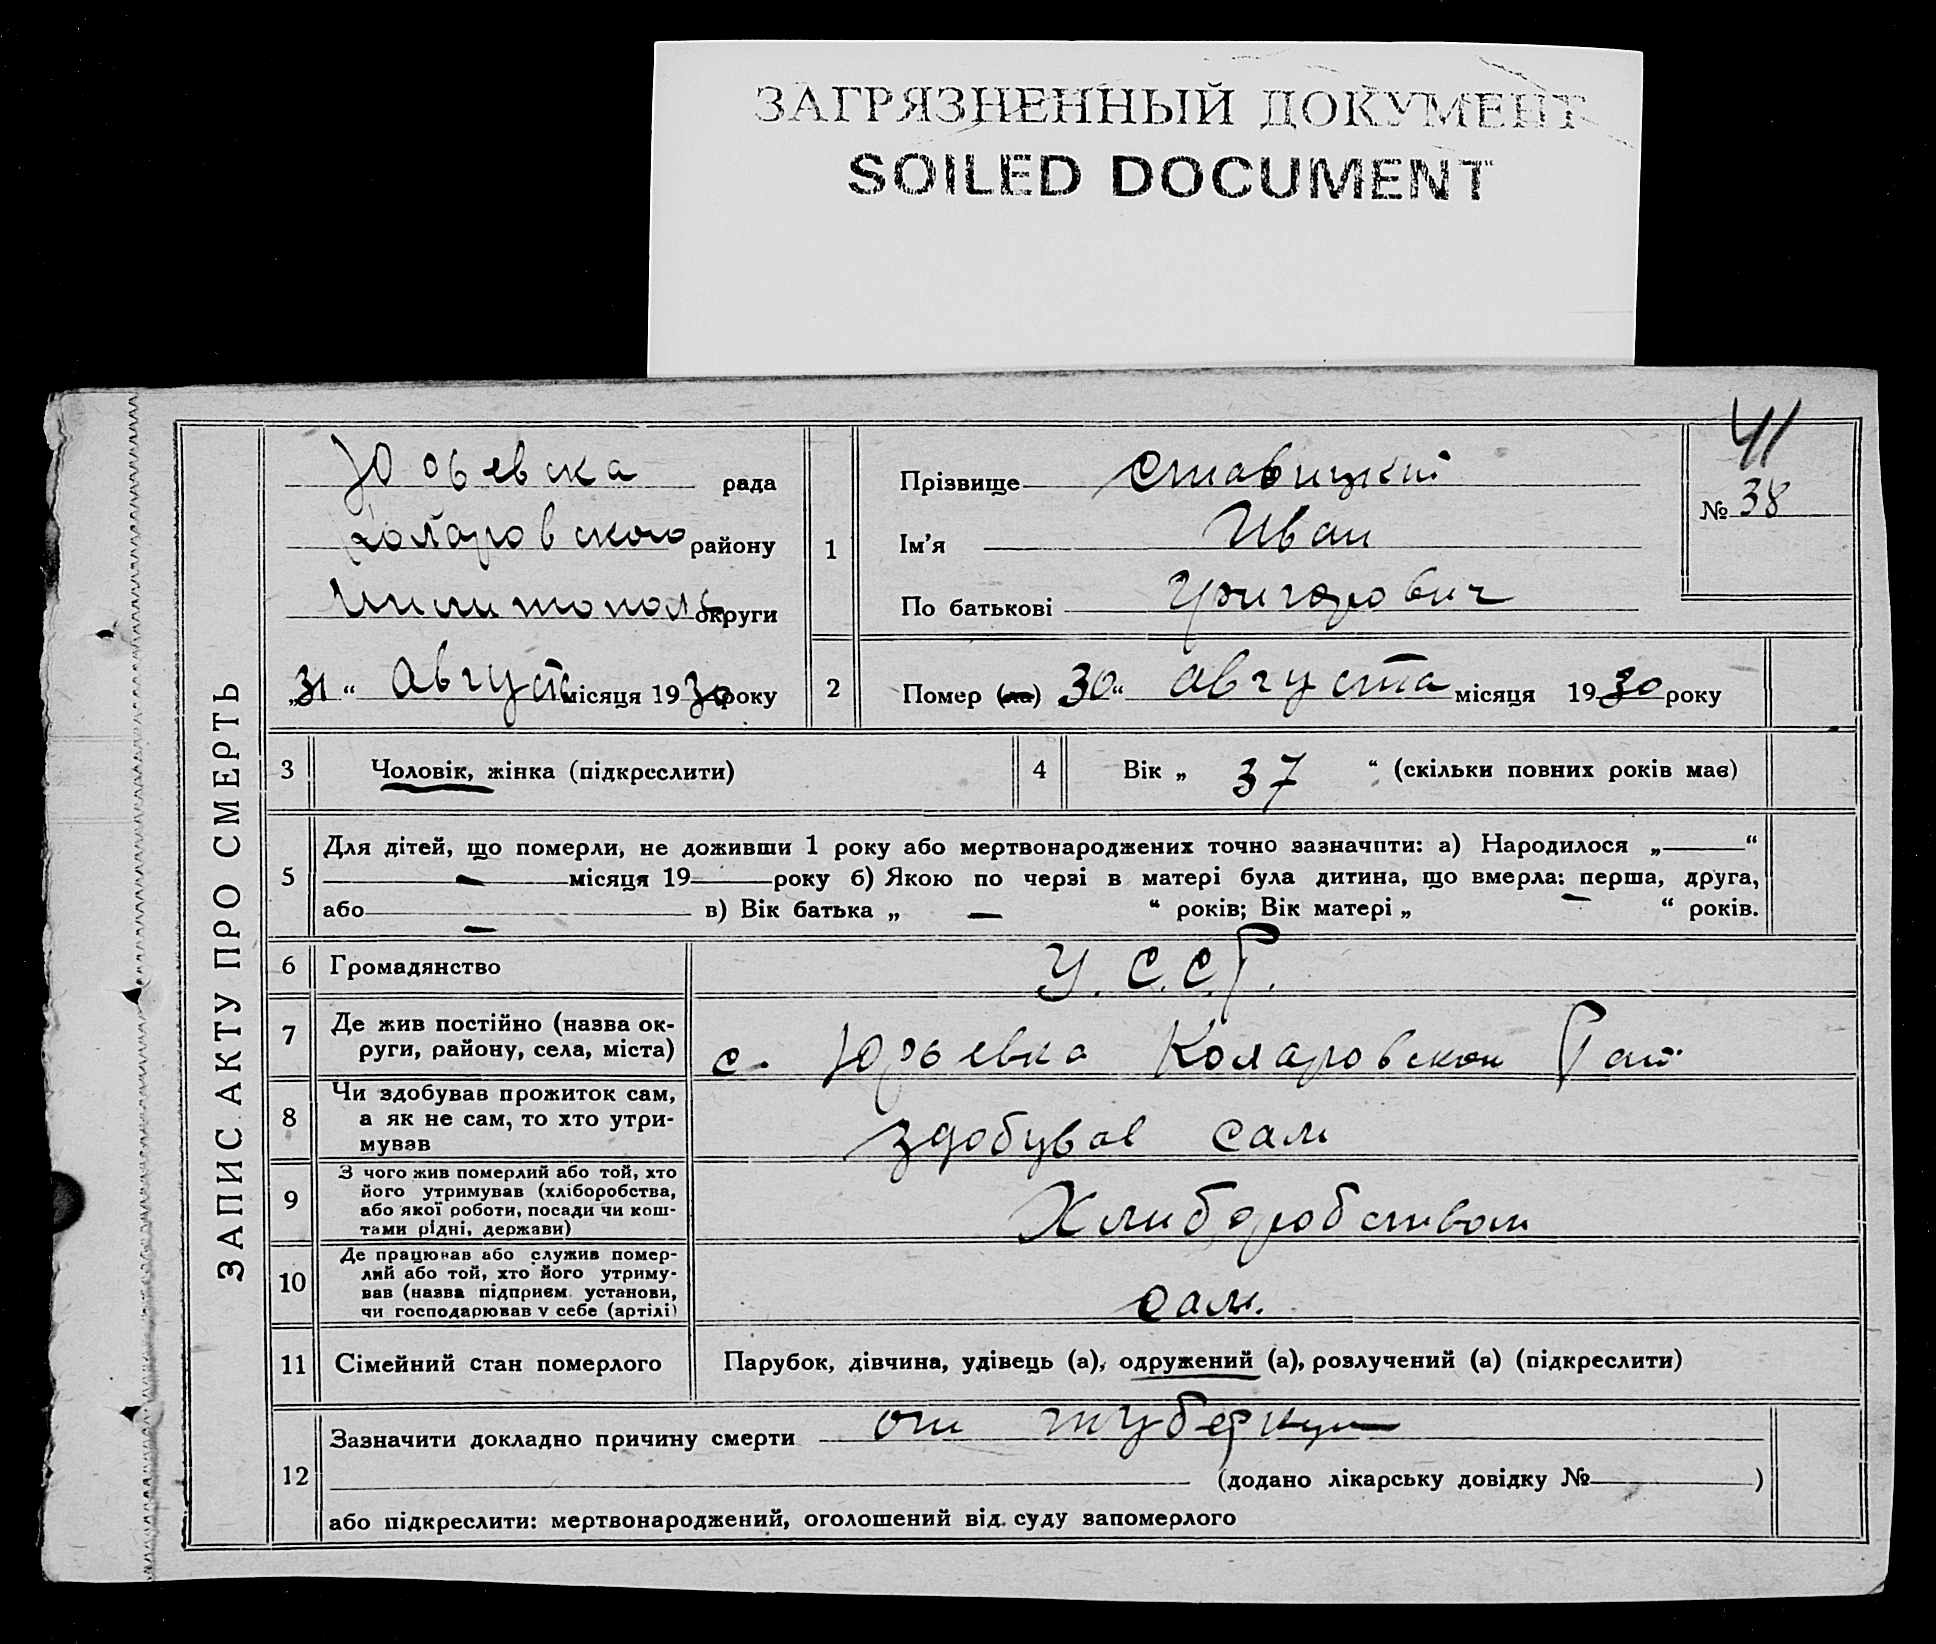 ЗАГРЯЗНЕННЫЙ ДОКУМЕНТ
SOILED DOCUMENT
ЗАПИС АКТУ ПРО СМЕРТЬ
41
№ 38
Юрьевска рада
Коларовского району
Милитополь округи
„31“ Августа місяця 1930 року
1
Прізвище Ставицкий
Ім’я Иван
По батькові Григорович
2 Помер (ла) 30“ Августа місяця 1930 року
3 Чоловік, жінка (підкреслити)
4 Вік „ 37 “ (скільки повних років має)
5
Для дітей, що померли, не доживши 1 року або мертвонароджених точно зазначити: а) Народилося „ — “
— місяця 19 — року б) Якою по черзі в матері була дитина, що вмерла: перша, друга,
або — в) Вік батька „ — “ років; Вік матері „ — “ років.
6 Громадянство У.С.С.Р.
7 Де жив постійно (назва ок-
руги, району, села, міста) с. Юрьевка Коларовскои Рай
8 Чи здобував прожиток сам,
а як не сам, то хто утри-
мував здобував сам
9 З чого жив померлий або той, хто
його утримував (хліборобства,
або якої роботи, посади чи кош-
тами рідні, держави) Хлиборобством
10 Де працював або служив помер-
лий або той, хто його утриму-
вав (назва підприєм. установи,
чи господарював у себе (артілі) сам.
11 Сімейний стан померлого Парубок, дівчина, удівець (а), одружений (а), розлучений (а) (підкреслити)
12
Зазначити докладно причину смерти от туберкул
(додано лікарську довідку № )
або підкреслити: мертвонароджений, оголошений від. суду запомерлого